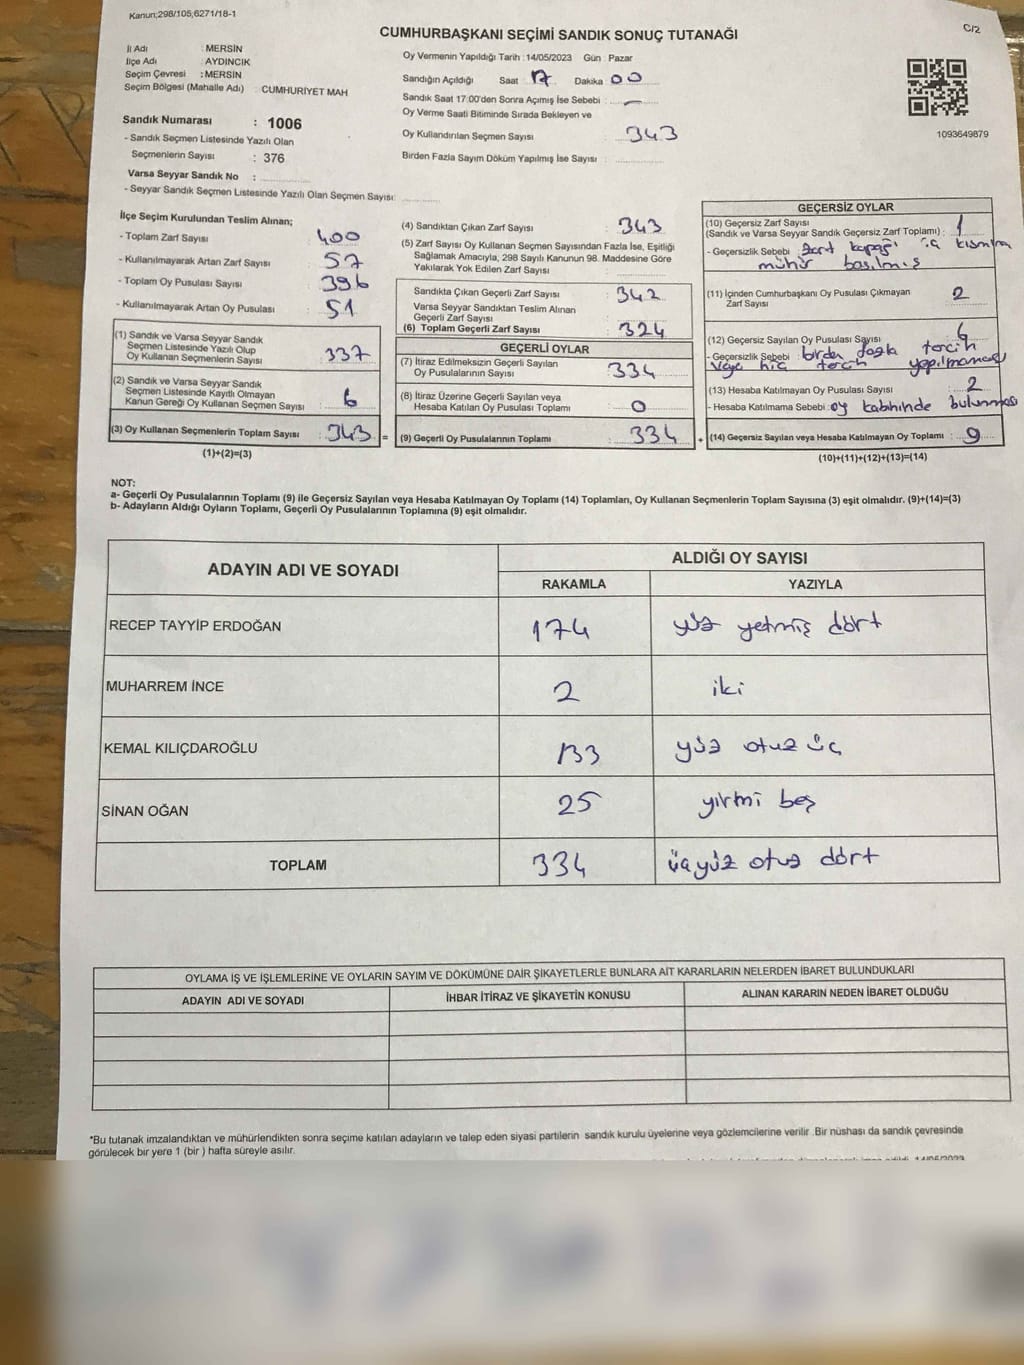 Kanun;298/105;6271/18-1
CUMHURBAŞKANI SEÇİMİ SANDIK SONUÇ TUTANAĞI
C/2
İl Adı : MERSİN
İlçe Adı : AYDINCIK
Seçim Çevresi : MERSİN
Seçim Bölgesi (Mahalle Adı) : CUMHURİYET MAH
Sandık Numarası : 1006
- Sandık Seçmen Listesinde Yazılı Olan
Seçmenlerin Sayısı : 376
Varsa Seyyar Sandık No :
- Seyyar Sandık Seçmen Listesinde Yazılı Olan Seçmen Sayısı:
Oy Vermenin Yapıldığı Tarih : 14/05/2023 Gün : Pazar
Sandığın Açıldığı Saat : 17 Dakika : 00
Sandık Saat 17:00'den Sonra Açımış İse Sebebi : —
Oy Verme Saati Bitiminde Sırada Bekleyen ve
Oy Kullandırılan Seçmen Sayısı : 343
Birden Fazla Sayım Döküm Yapılmış İse Sayısı :
1093649879
İlçe Seçim Kurulundan Teslim Alınan;
- Toplam Zarf Sayısı : 400
- Kullanılmayarak Artan Zarf Sayısı : 57
- Toplam Oy Pusulası Sayısı : 396
- Kullanılmayarak Artan Oy Pusulası : 51
(1) Sandık ve Varsa Seyyar Sandık
Seçmen Listesinde Yazılı Olup
Oy Kullanan Seçmenlerin Sayısı : 337
(2) Sandık ve Varsa Seyyar Sandık
Seçmen Listesinde Kayıtlı Olmayan
Kanun Gereği Oy Kullanan Seçmen Sayısı : 6
(3) Oy Kullanan Seçmenlerin Toplam Sayısı : 343 =
(1)+(2)=(3)
(4) Sandıktan Çıkan Zarf Sayısı : 343
(5) Zarf Sayısı Oy Kullanan Seçmen Sayısından Fazla İse, Eşitliği
Sağlamak Amacıyla, 298 Sayılı Kanunun 98. Maddesine Göre
Yakılarak Yok Edilen Zarf Sayısı :
Sandıkta Çıkan Geçerli Zarf Sayısı : 342
Varsa Seyyar Sandıktan Teslim Alınan
Geçerli Zarf Sayısı :
(6) Toplam Geçerli Zarf Sayısı : 324
GEÇERLİ OYLAR
(7) İtiraz Edilmeksizin Geçerli Sayılan
Oy Pusulalarının Sayısı : 334
(8) İtiraz Üzerine Geçerli Sayılan veya
Hesaba Katılan Oy Pusulası Toplamı : 0
(9) Geçerli Oy Pusulalarının Toplamı : 334 +
GEÇERSİZ OYLAR
(10) Geçersiz Zarf Sayısı
(Sandık ve Varsa Seyyar Sandık Geçersiz Zarf Toplamı) : 1
- Geçersizlik Sebebi : zarf kapağı iç kısmına
mühür basılmış
(11) İçinden Cumhurbaşkanı Oy Pusulası Çıkmayan
Zarf Sayısı : 2
(12) Geçersiz Sayılan Oy Pusulası Sayısı :
- Geçersizlik Sebebi birden fazla tercih
veya hiç tercih yapılmaması
(13) Hesaba Katılmayan Oy Pusulası Sayısı : 2
- Hesaba Katılmama Sebebi : oy kabininde bulunması
(14) Geçersiz Sayılan veya Hesaba Katılmayan Oy Toplamı : 9
(10)+(11)+(12)+(13)=(14)
NOT:
a- Geçerli Oy Pusulalarının Toplamı (9) ile Geçersiz Sayılan veya Hesaba Katılmayan Oy Toplamı (14) Toplamları, Oy Kullanan Seçmenlerin Toplam Sayısına (3) eşit olmalıdır. (9)+(14)=(3)
b- Adayların Aldığı Oyların Toplamı, Geçerli Oy Pusulalarının Toplamına (9) eşit olmalıdır.
ADAYIN ADI VE SOYADI
ALDIĞI OY SAYISI
RAKAMLA YAZIYLA
RECEP TAYYİP ERDOĞAN 174 yüz yetmiş dört
MUHARREM İNCE 2 iki
KEMAL KILIÇDAROĞLU 133 yüz otuz üç
SİNAN OĞAN 25 yirmi beş
TOPLAM 334 üçyüz otuz dört
OYLAMA İŞ VE İŞLEMLERİNE VE OYLARIN SAYIM VE DÖKÜMÜNE DAİR ŞİKAYETLERLE BUNLARA AİT KARARLARIN NELERDEN İBARET BULUNDUKLARI
ADAYIN ADI VE SOYADI İHBAR İTİRAZ VE ŞİKAYETİN KONUSU ALINAN KARARIN NEDEN İBARET OLDUĞU
*Bu tutanak imzalandıktan ve mühürlendikten sonra seçime katılan adayların ve talep eden siyasi partilerin sandık kurulu üyelerine veya gözlemcilerine verilir .Bir nüshası da sandık çevresinde
görülecek bir yere 1 (bir ) hafta süreyle asılır.